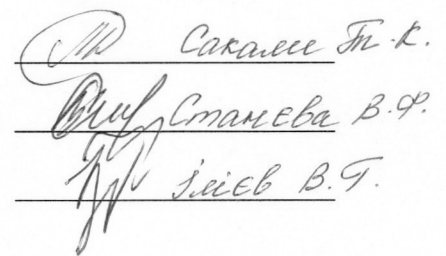 Сакали Т.К.
Станєва В.Ф.
Ілієв В.Г.